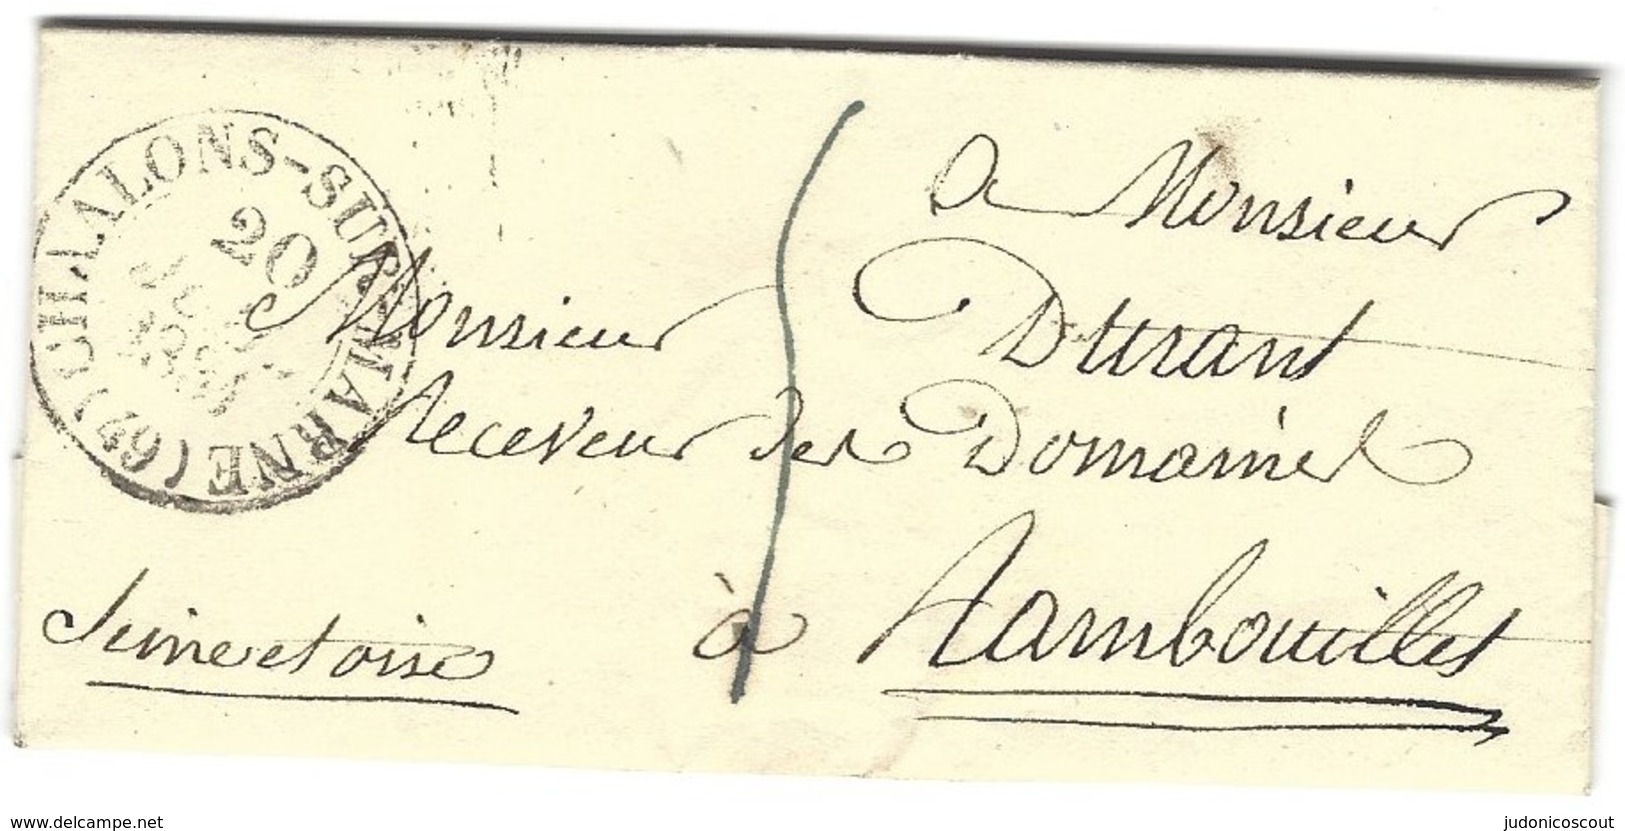 CHALALONS-SUR-MARNE (49)
20
A Monsieur
Monsieur Durant
Receveur des Domaines
à Rambouillet
Seine et oise
www.delcampe.net
judonicoscout